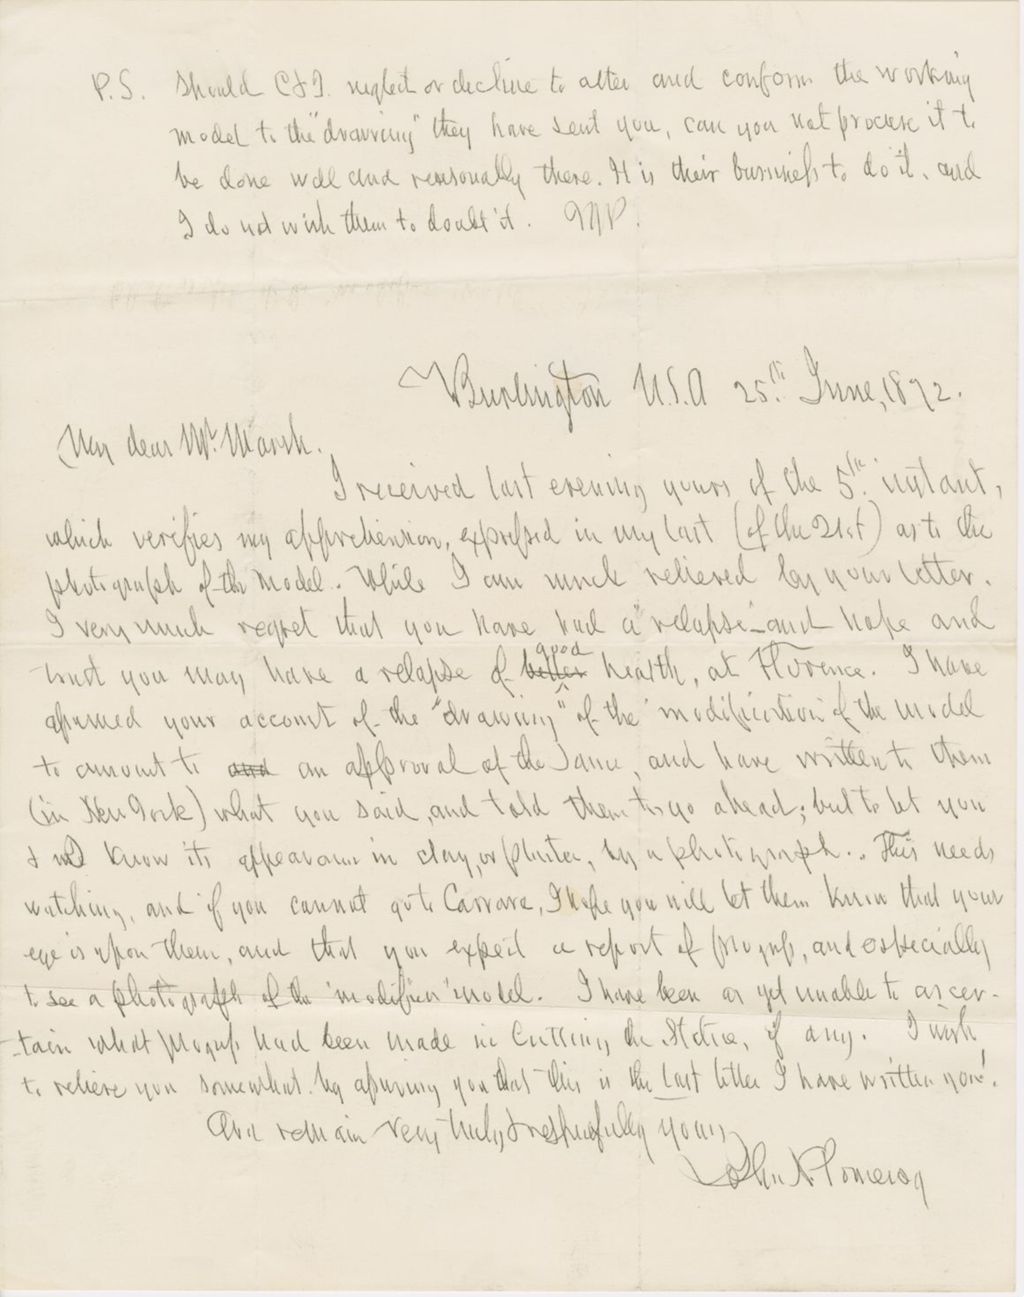 P.S. Should C&I. neglect or decline to alter and conform the working
model to the "drawing" they have sent you, can you not procure it to
be done well and reasonally there. It is their bussiness to do it, and
I do not wish them to doubt it. JNP.
Burlington U.S.A 25th June, 1872.
My dear Mr. Marsh.
I received last evening yours of the 5th instant,
which verifies my apprehension, expressed in my last (of the 21st) as to the
photograph of the model. While I am much relieved by your letter.
I very much regret that you have had a "relapse" and hope and
trust you may have a relapse of better good health, at Florence. I have
assumed your account of the "drawing" of the 'modification' of the model
to amount to and an approval of the same, and have written to them
(in New York) what you said, and told them to go ahead; but to let you
& me know its appearance in clay, or plaster, by a photograph. This needs
watching, and if you cannot go to Carrara, I hope you will let them know that your
eye is upon them, and that you expect a report of progress, and especially
to see a photograph of the 'modified' model. I have been as yet unable to ascer-
-tain what progress had been made in Cutting the Statue, if any. I wish
to relieve you somewhat by assuring you that this is the last letter I have written you!
And remain very truly & respectfully yours,
John N. Pomeroy